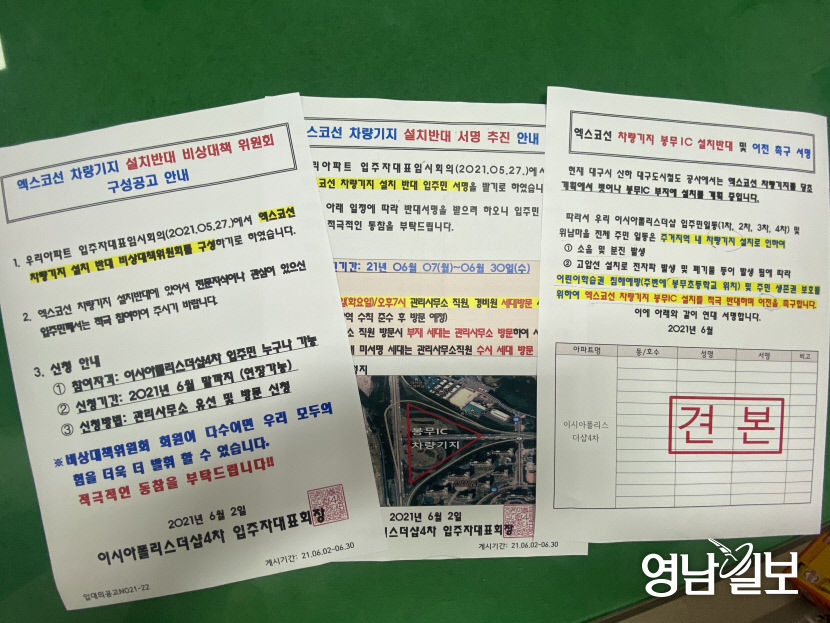 엑스코선 차량기지 설치반대 비상대책 위원회
구성공고 안내
1. 우리아파트 입주자대표임시회의(2021.05.27.)에서 엑스코선
차량기지 설치 반대 비상대책위원회를 구성하기로 하였습니다.
2. 엑스코선 차량기지 설치반대에 있어서 전문지식이나 관심이 있으신
입주민께서는 적극 참여하여 주시기 바랍니다.
3. 신청 안내
① 참여자격: 이시아폴리스더샵4차 입주민 누구나 가능
② 신청기간: 2021년 6월 말까지 (연장가능)
③ 신청방법: 관리사무소 유선 및 방문 신청
※비상대책위원회 회원이 다수여면 우리 모두의
힘을 더욱 더 발휘 할 수 있습니다.
적극적인 동참을 부탁드립니다!!
2021년 6월 2일
이시아폴리스더샵4차 입주자대표회장
게시기간: 21.06.02~06.30
입대의공고NO21-22
스코선 차량기지 설치반대 서명 추진 안내
리아파트 입주자대표임시회의(2021.05.27.)에서
코선 차량기지 설치 반대 입주민 서명을 받기로 하였습니
아래 일정에 따라 반대서명을 받으려 하오니 입주민
적극적인 동참을 부탁드립니다.
기간: 21년 06월 07(월)~06월 30일(수)
(화요일)/오후7시 관리사무소 직원, 경비원 세대방문
역 수칙 준수 후 방문 예정)
소 직원 방문시 부재 세대는 관리사무소 방문하여 서
미서명 세대는 관리사무소직원 수시 세대 방문
지
봉무IC
차량기지
2021년 6월 2일
스더샵4차 입주자대표회장
게시기간: 21.06.02~06.30
엑스코선 차량기지 봉무IC 설치반대 및 이전 촉구 서명
현재 대구시 산하 대구도시철도 공사에서는 엑스코선 차량기지를 당초
계획에서 벗어나 봉무IC 부지에 설치를 계획 중입니다.
따라서 우리 이시아폴리스더샵 입주민일동(1차, 2차, 3차, 4차) 및
위남마을 전체 주민 일동은 주거지역 내 차량기지 설치로 인하여
① 소음 및 분진 발생
② 고압선 설치로 전자파 발생 및 폐기물 등이 발생 됨에 따라
어린이학습권 침해예방(주변에 봉무초등학교 위치) 및 주민 생존권 보호를
위하여 엑스코선 차량기지 봉무IC 설치를 적극 반대하며 이전을 촉구합니다.
이에 아래와 같이 연대 서명합니다.
2021년 6월
아파트명 동/호수 성명 서명 비고
이시아폴리스
더샵4차
견 본
영남일보